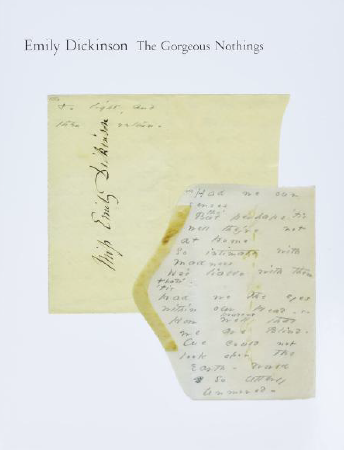 Emily Dickinson The Gorgeous Nothings
light, and
the
Miss Emily Dickinson
Had we our
senses
But perhaps tis
well they're not
at Home
So intimate with
Madness
liable with them
that's
tis
Had we the eyes
within our Head -
How well that
we are Blind -
We could not
look upon the
Earth -
So utterly
unmoved -